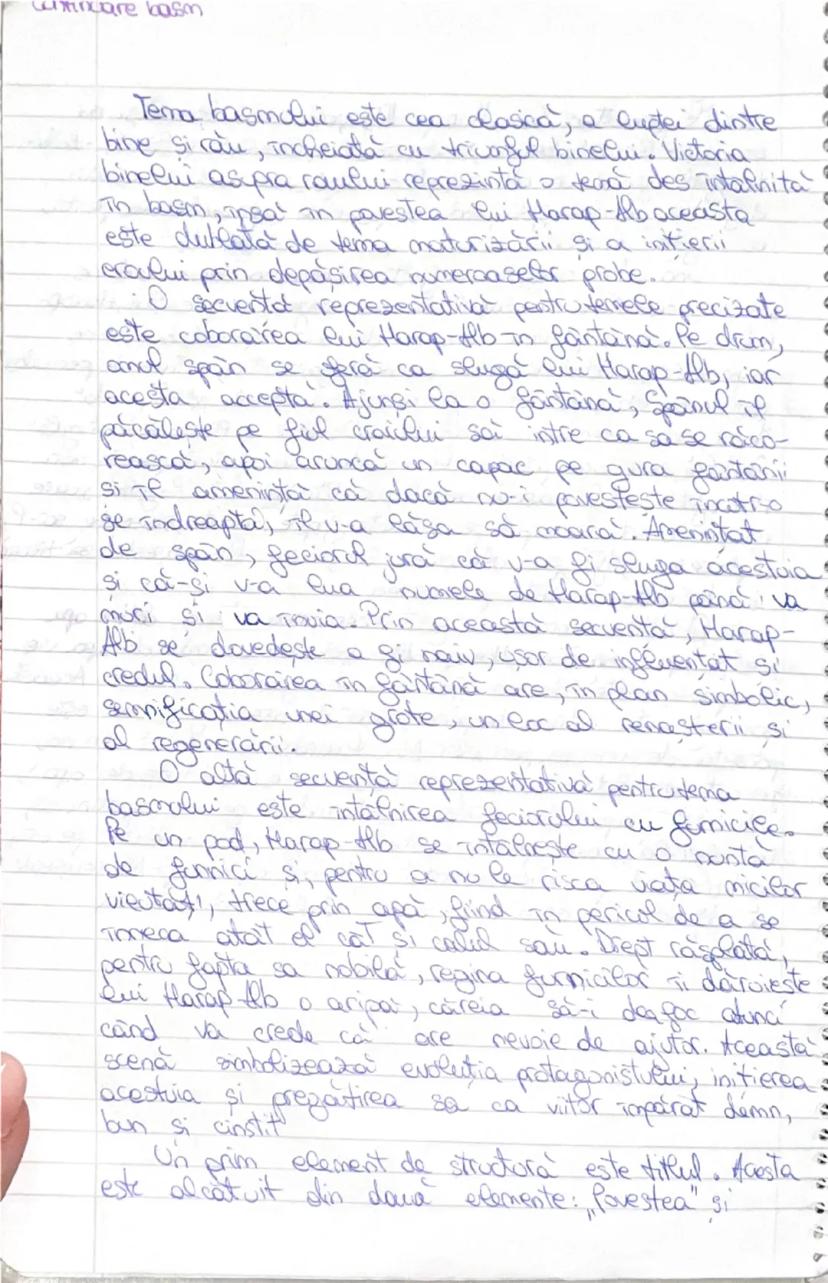 continuare basm
Tema basmului este cea clasică, a luptei dintre
bine și rău, încheiată cu triumful binelui. Victoria
binelui asupra raului reprezintă o temă des întâlnită
în basm, însă în povestea lui Harap-Alb aceasta
este dublată de tema maturizării și a inițierii
eroului prin depășirea numeroaselor probe.
O secvență reprezentativă pentru temele precizate
este coborârea lui Harap-Alb în fântână. Pe drum,
omul spân se oferă ca slugă lui Harap-Alb, iar
acesta acceptă. Ajunși la o fântână, Spânul îl
păcălește pe fiul craiului să intre ca sa se răco-
rească, apoi aruncă un capac pe gura fântânii
și îl amenință că dacă nu-i povestește încotro
se îndreaptă, îl v-a lăsa să moară. Amenințat
de spân, feciorul jură că v-a fi sluga acestuia
și că-și v-a lua numele de Harap-Alb până va
muri și va învia. Prin această secvență, Harap-
Alb se dovedește a fi naiv, ușor de influențat și
credul. Coborârea în fântână are, în plan simbolic,
semnificația unei grote, un loc al renașterii și
al regenerării.
O altă secvență reprezentativă pentru tema
basmului este întâlnirea feciorului cu furnicile.
Pe un pod, Harap-Alb se întâlnește cu o nuntă
de furnici și, pentru a nu le risca viața micilor
vietăți, trece prin apă, fiind în pericol de a se
îneca atât el cât și calul său. Drept răsplată,
pentru fapta sa nobilă, regina furnicilor îi dăruiește
lui Harap-Alb o aripă, căreia să-i dea foc atunci
când va crede că are nevoie de ajutor. Această
scenă simbolizează evoluția protagonistului, inițierea
acestuia și pregătirea sa ca viitor împărat demn,
bun și cinstit
Un prim element de structură este titlul. Acesta
este alcătuit din două elemente: „Povestea" și